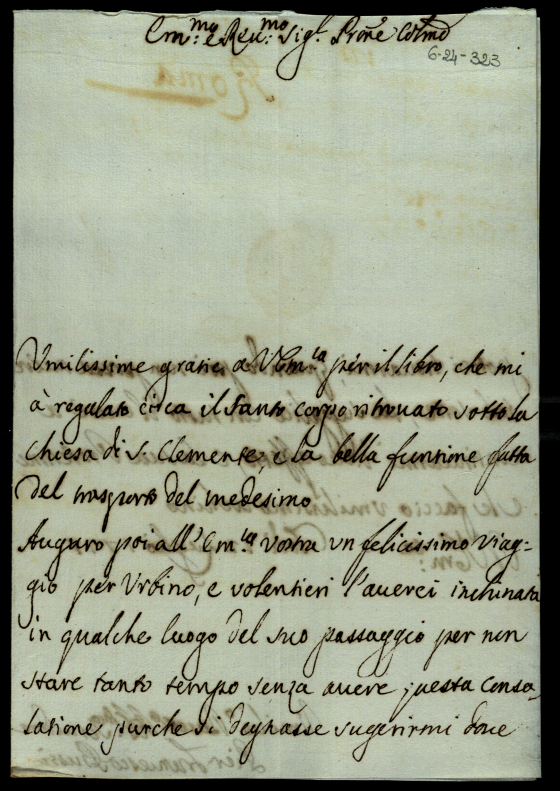 Em.mo e Reu.mo Sig.r Prone Colmo
6-24-323
Roma
Vmilissime gratie a VEm.za pér il libro, che mi
à regalato circa il Santo corpo ritrouato sotto la
Chiesa di S. Clemente, e la bella funtione fatta
del trasporto del medesimo
Auguro poi all'Em.za vostra vn felicissimo viag-
gio per Vrbino, e volentieri l'auerei inchinata
in qualche luogo del suo passaggio per non
stare tanto tempo senza auere questa conso-
latione purche si degnasse sugerirmi doue